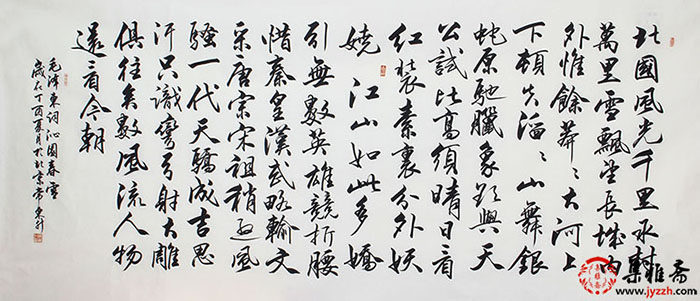 北國風光千里冰封
萬里雪飄望長城內
外惟餘莽〻大河上
下頓失滔〻山舞銀
蛇原馳臘象欲與天
公試比高須晴日看
紅裝素裹分外妖
嬈 江山如此多嬌
引無數英雄競折腰
惜秦皇漢武略輸文
采唐宗宋祖稍遜風
騷一代天驕成吉思
汗只識彎弓射大雕
俱往矣數風流人物
還看今朝
毛澤東詞沁園春雪
歲在丁酉夏月於北京
集雅斋
www.jyzzh.com